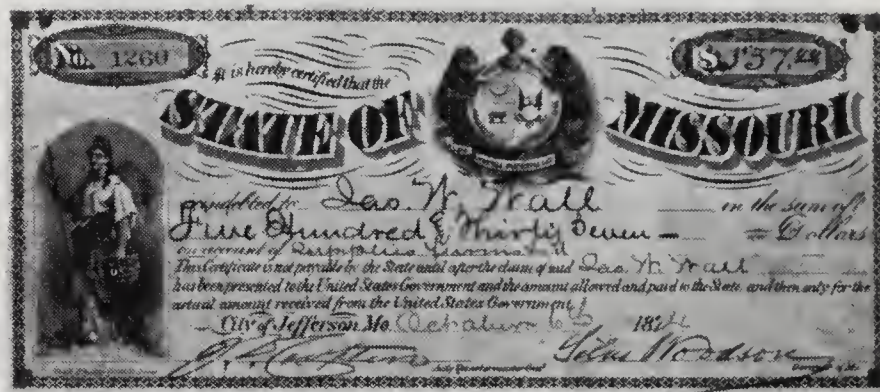 No. 1260
$ 537.00
It is hereby certified that the
STATE OF MISSOURI
is indebted to Jas. W. Wall in the sum of
Five Hundred & Thirty Seven Dollars
on account of Supplies
This Certificate is not payable by the State until after the claim of said Jas. W. Wall
has been presented to the United States Government and the amount allowed and paid to the State and then only for the
actual amount received from the United States Government.
City of Jefferson, Mo. 6th 1874
Silas Woodson